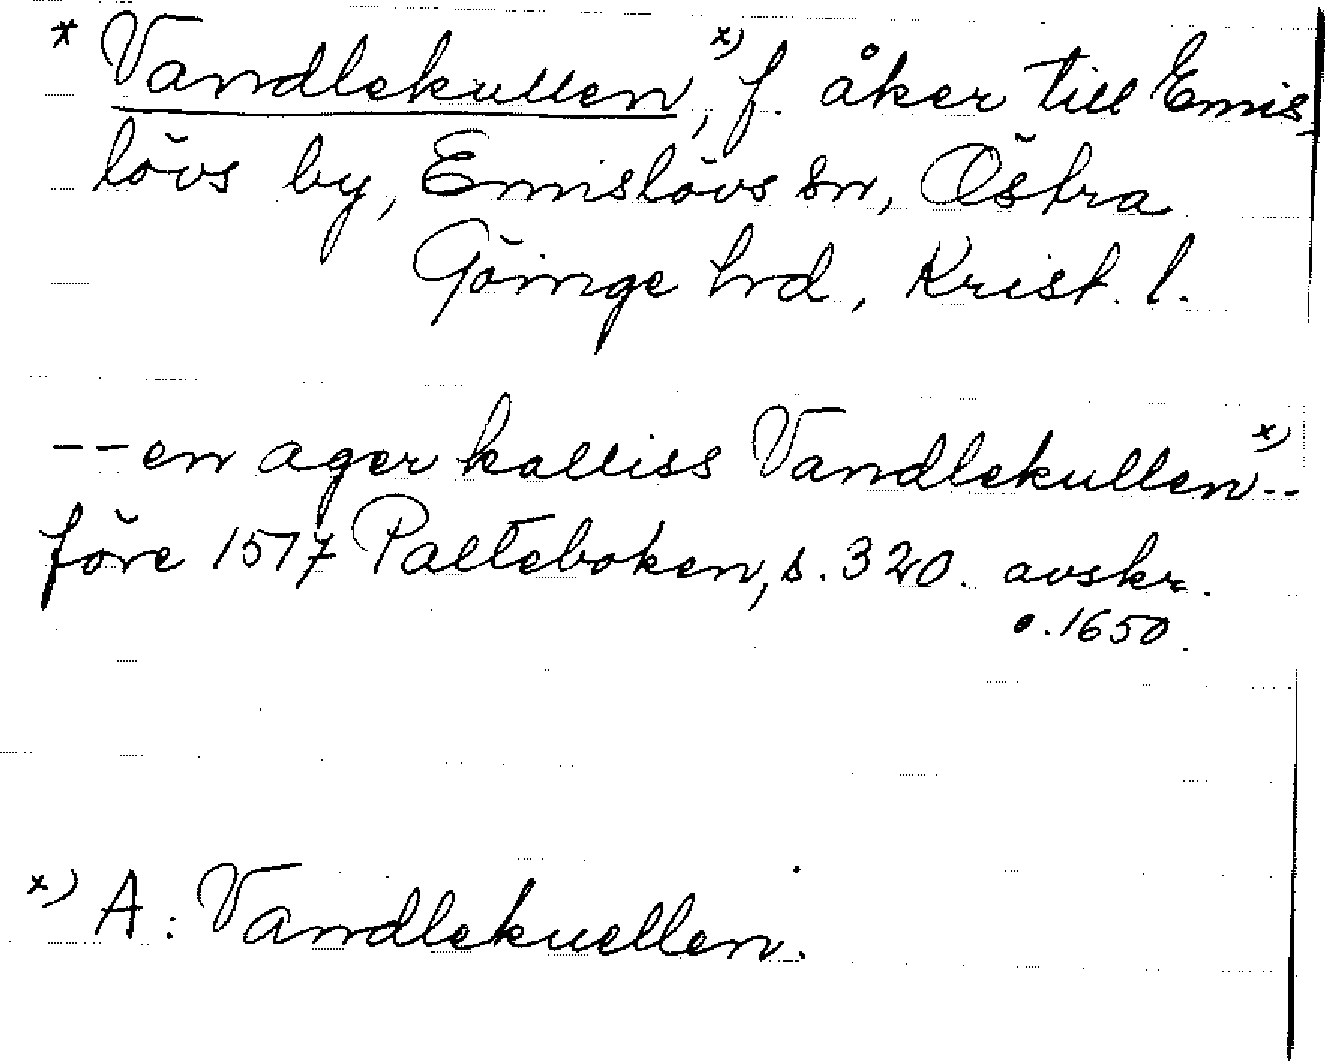 * Vandlekullen,ˣ⁾ f. åker till Emis-
lövs by, Emislövs sn, Östra
Göinge hrd, Krist. l.
--en ager kalliss Vandlekullenˣ⁾--
före 1517 Palteboken, s. 320. avskr.
o. 1650.
ˣ⁾ A: Vandlekuellen.